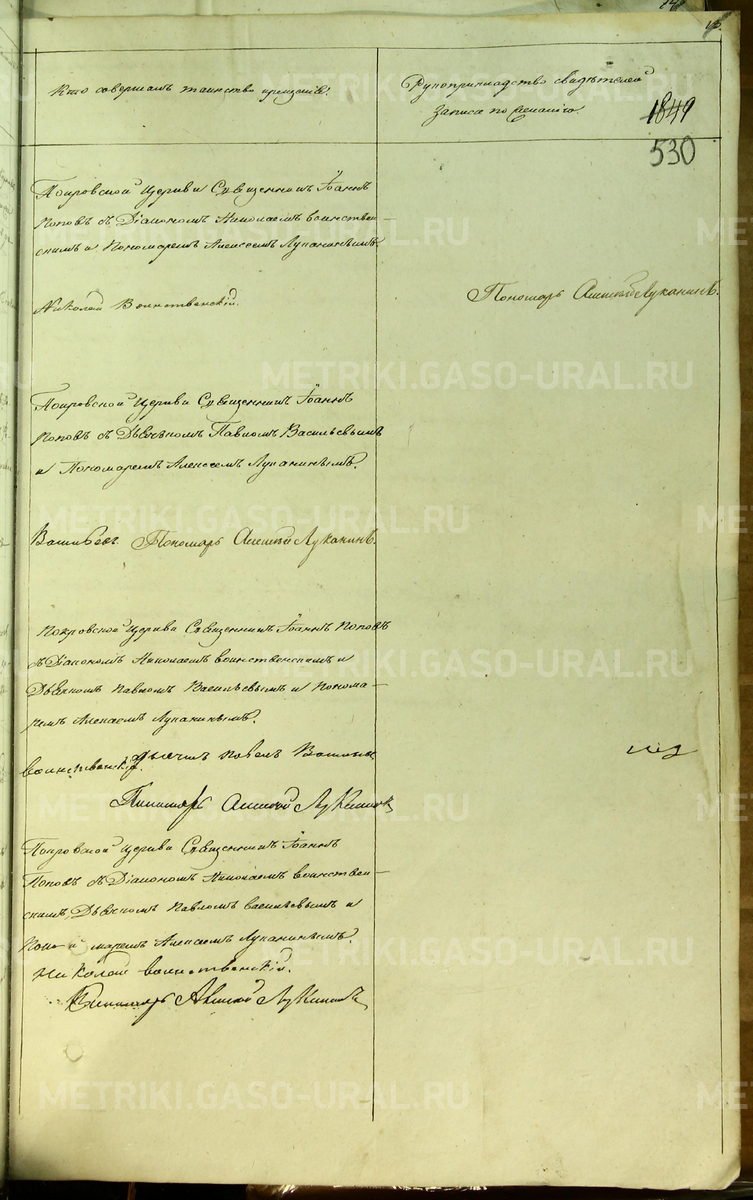 Кто совершалъ таинство крещенiя.
Рукоприкладство свидѣтелей
записи по желанiю.
1849
530
Покровской церкви Священникъ Iоаннъ
Поповъ съ Дiакономъ Николаемъ воинствен-
скимъ и Пономаремъ Алексеемъ Луканинымъ.
Николай Воинственскiй.
Пономарь Алексей Луканинъ.
Покровской церкви Священникъ Iоаннъ
Поповъ съ Дьячкомъ Павломъ Васильевымъ
и Пономаремъ Алексеемъ Луканинымъ.
Пономарь Алексей Луканинъ.
Покровской церкви Священникъ Iоаннъ Поповъ
съ Дiакономъ Николаемъ воинственскимъ и
Дьячкомъ Павломъ Васильевымъ и Понома-
ремъ Алексеемъ Луканинымъ.
воинственскiй. Дьячикъ Павелъ
Пономарь Алексей Луканинъ
Покровской церкви Священникъ Iоаннъ
Поповъ съ Дiакономъ Николаемъ воинствен-
скимъ, Дьячкомъ Павломъ васильевымъ и
Поно- маремъ Алексеемъ Луканинымъ.
Николай воинственскiй.
Пономарь Алексей Луканинъ
METRIKI.GASO-URAL.RU